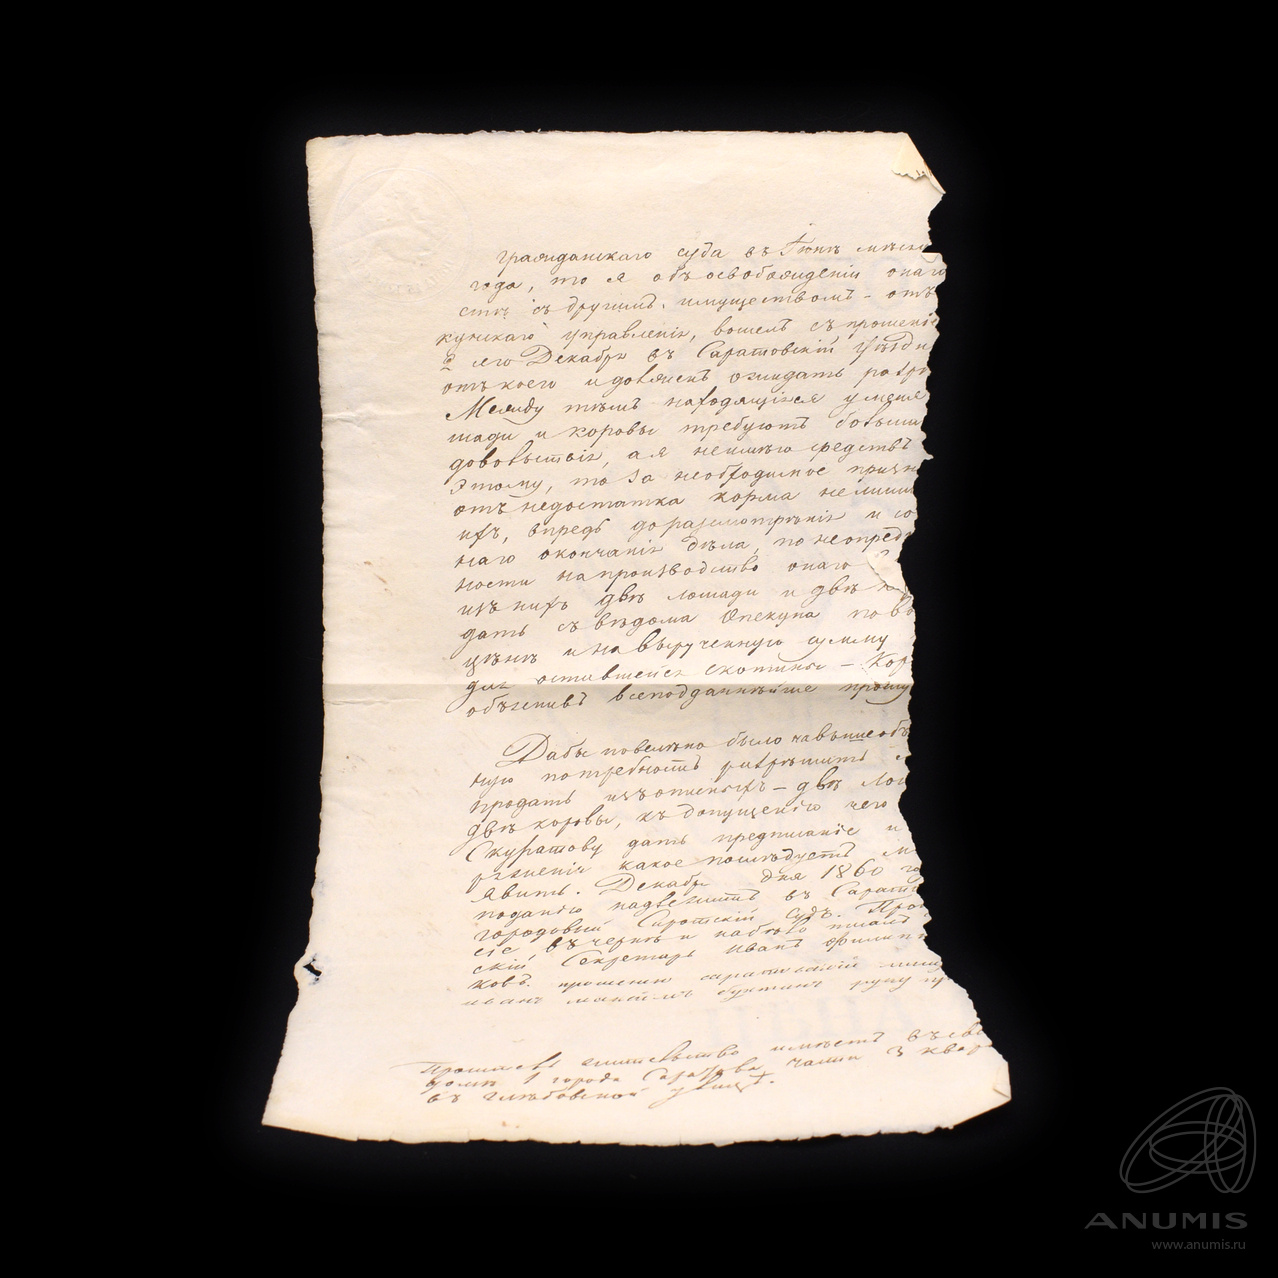 гражданскаго суда въ Іюнѣ мѣся
года, то я объ освобожденіи онаго
сти съ другимъ имуществомъ – отъ
кунскаго управленія, вошелъ съ прошеніе
2го Декабря въ Саратовскій Уѣздн
отъ коего и долженъ ожидать разрѣ
Между тѣмъ находящіяся у меня
шади и коровы требуютъ большаг
довольствія, а я неимѣю средствъ
этому, то за необходимое призн
отъ недостатка корма нелиши
ихъ, впредь до разсмотрѣнія и со
наго окончанія дѣла, по неопредѣ
ности на производство онаго
изъ нихъ двѣ лошади и двѣ к
дать съ вѣдома Опекуна по во
цѣнѣ и на вырученную сумму
для оставшейся скотины – Кор
объяснивъ всеподданнѣйше прошу
Дабы повелѣно было на вышеобъ
ную потребность разрѣшить
продать изъ описныхъ – двѣ лош
двѣ коровы, къ допущенію чего
Скуратову дать предписаніе и
рѣшеніи какое послѣдуетъ м
явить. Декабря дня 1860 го
поданію надлежитъ въ Сарат
городовый Сиротскій Судъ. Про
сіе, въ чернѣ и на бѣло писалъ
скій Секретарь Иванъ Филипп
ковъ. прошенію саратовскій мищ
иванъ руку пр
жительство имѣетъ въ сво
домѣ 1 города Саратова части 3 квар
въ глѣбовской улицѣ.
ANUMIS
www.anumis.ru